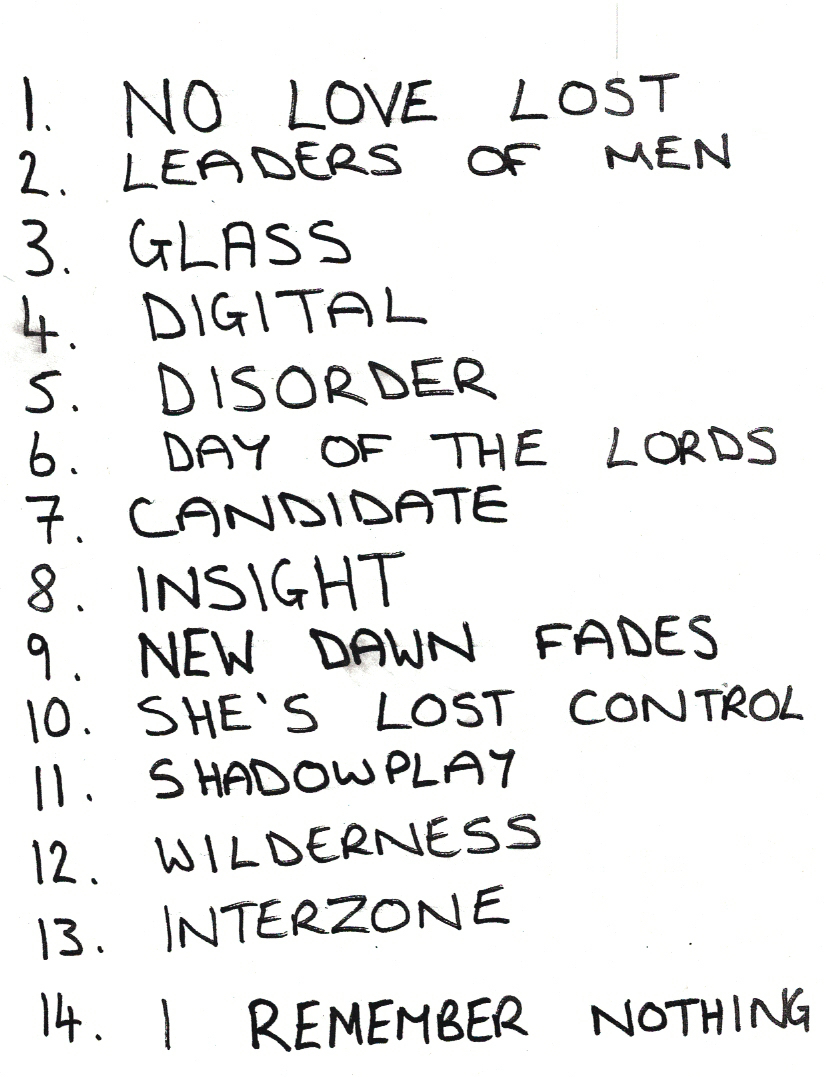 1. NO LOVE LOST
2. LEADERS OF MEN
3. GLASS
4. DIGITAL
5. DISORDER
6. DAY OF THE LORDS
7. CANDIDATE
8. INSIGHT
9. NEW DAWN FADES
10. SHE'S LOST CONTROL
11. SHADOWPLAY
12. WILDERNESS
13. INTERZONE
14. I REMEMBER NOTHING